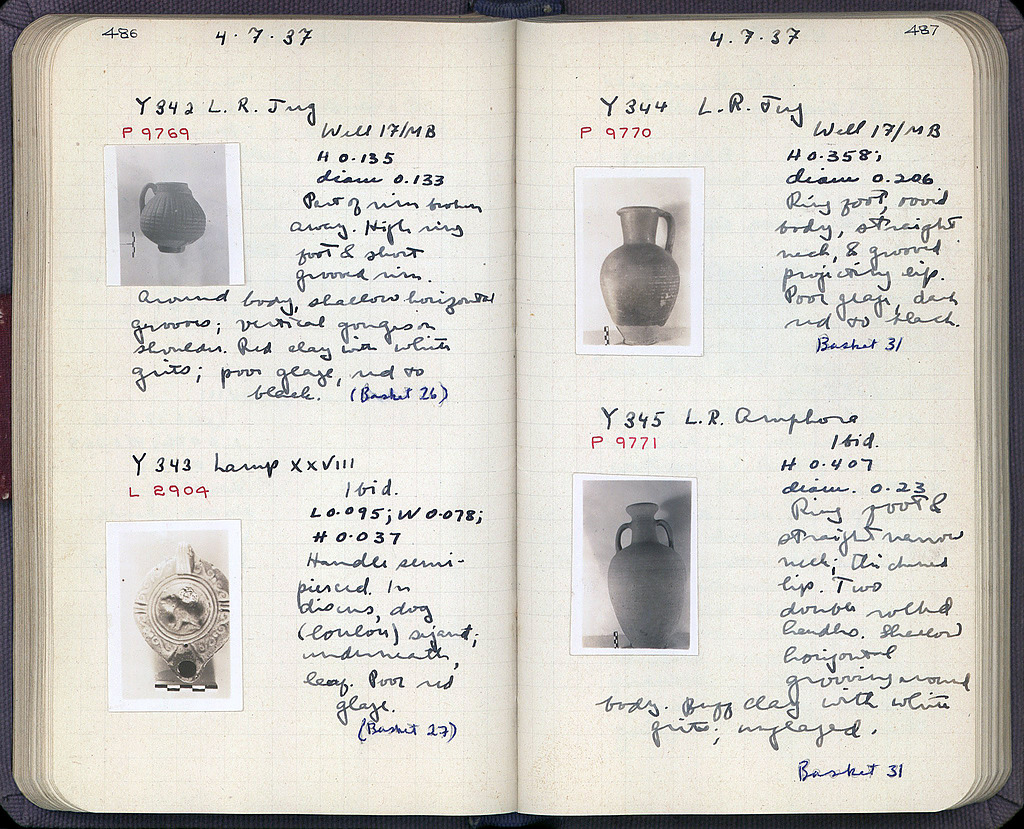 486
4.7.37
Y 342 L. R. Jug
P 9769
Well 17/MB
H 0.135
diam 0.133
Part of rim broken
away. High ring
foot & short
grooved rim.
Around body, shallow horizontal
grooves; vertical gouges on
shoulder. Red clay with white
grits; poor glaze, red to
black. (Basket 26)
Y 343 Lamp XXVIII
L 2904
Ibid.
L 0.095; W 0.078;
H 0.037
Handle semi-
pierced. In
discus, dog
sejant;
underneath,
leaf. Poor red
glaze.
(Basket 27)
487
4.7.37
Y 344 L.R. Jug
P 9770
Well 17/MB
H 0.358;
diam 0.206
Ring foot, ovoid
body, straight
neck, & grooved
projecting lip.
Poor glaze, dark
red to black.
Basket 31
Y 345 L.R. Amphora
P 9771
Ibid.
H 0.407
diam. 0.23
Ring foot &
straight narrow
neck; thickened
lip. Two
double rolled
handles. Shallow
horizontal
grooving around
body. Buff clay with white
grits; unglazed.
Basket 31